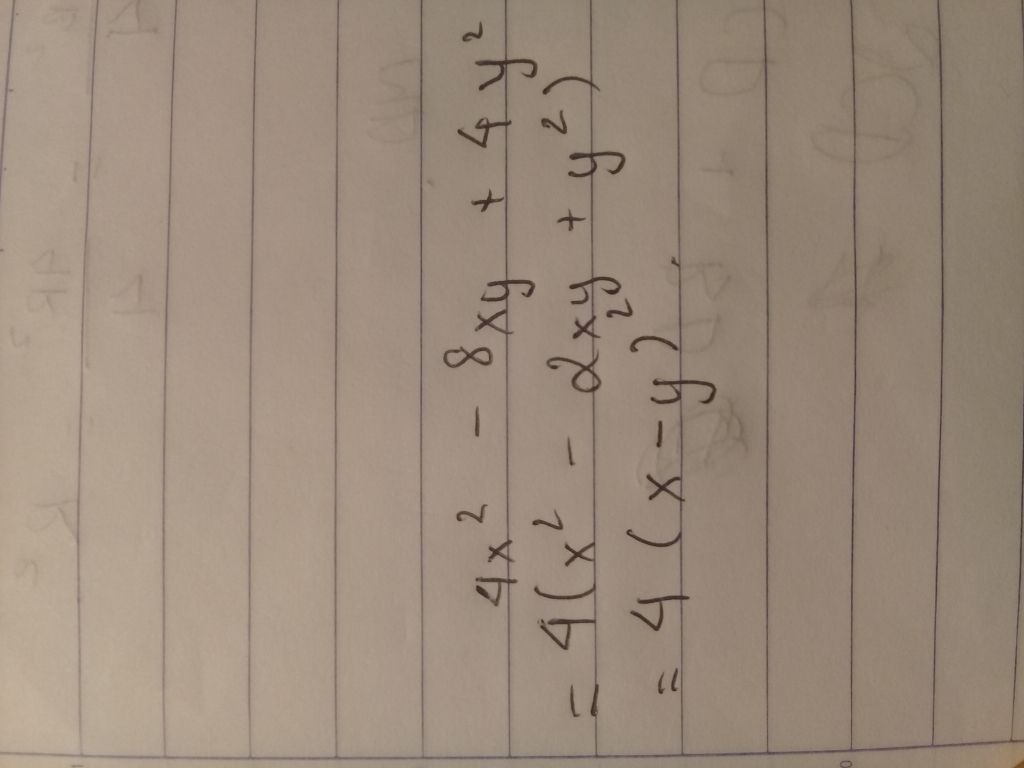 4x² - 8xy + 4y²
= 4(x² - 2xy + y²)
= 4(x-y)²